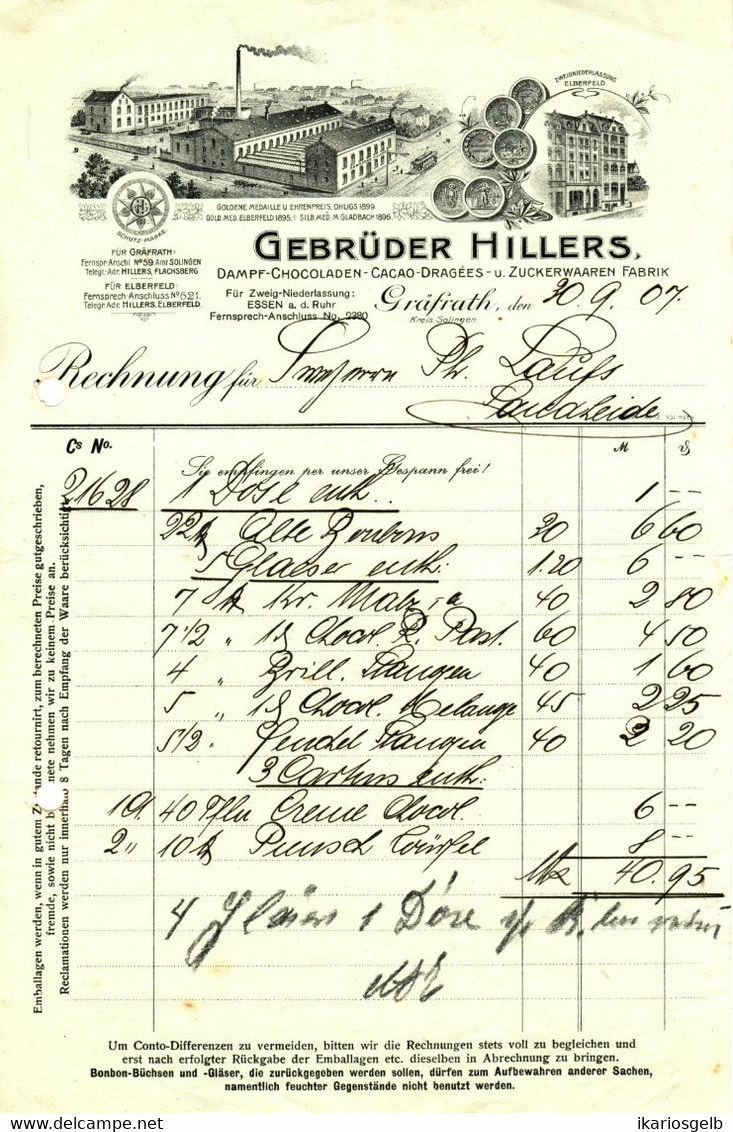 ZWEIGNIEDERLASSUNG
ELBERFELD.
GOLDENE MEDAILLE U. EHRENPREIS, OHLIGS 1899.
GOLD. MED. ELBERFELD 1895. SILB. MED. M. GLADBACH 1896.
SCHUTZ-MARKE.
GEBRÜDER HILLERS,
DAMPF-CHOCOLADEN-CACAO-DRAGÉES- U. ZUCKERWAAREN FABRIK
FÜR GRÄFRATH:
Fernspr.-Anschl. No 59 Amt SOLINGEN
Telegr.-Adr. HILLERS, FLACHSBERG.
FÜR ELBERFELD:
Fernsprech-Anschluss No 621.
Telegr.-Adr. HILLERS, ELBERFELD.
Für Zweig-Niederlassung:
ESSEN a. d. Ruhr
Fernsprech-Anschluss No. 2380
Gräfrath, den 30.9.07.
Kreis Solingen.
Rechnung für Ph. Laufs
Cs No. M
Sie empfingen per unser Gespann frei!
21628 1 Dose enth. 1 --
22 Alte Bonbons 30 6 60
5 Glaeser enth: 1.20 6 --
7 Kr. Malz 40 2 80
7 1/2 " Chocol. P. Past. 60 4 50
4 " Brill. Stangen 40 1 60
5 " Chocol. Melange 45 2 25
5 1/2 " Fenchel Stangen 40 2 20
3 Cartons enth:
1 40 Tfln Creme Chocol. 6 --
2 " 10 Punsch Würfel 8 --
Mk 40.95
4 Gläser 1 Dose
Emballagen werden, wenn in gutem Zustande retournirt, zum berechneten Preise gutgeschrieben,
fremde, sowie nicht berechnete nehmen wir zu keinem Preise an.
Reclamationen werden nur innerhalb 8 Tagen nach Empfang der Waare berücksichtigt.
Um Conto-Differenzen zu vermeiden, bitten wir die Rechnungen stets voll zu begleichen und
erst nach erfolgter Rückgabe der Emballagen etc. dieselben in Abrechnung zu bringen.
Bonbon-Büchsen und -Gläser, die zurückgegeben werden sollen, dürfen zum Aufbewahren anderer Sachen,
namentlich feuchter Gegenstände nicht benutzt werden.
ikariosgelb